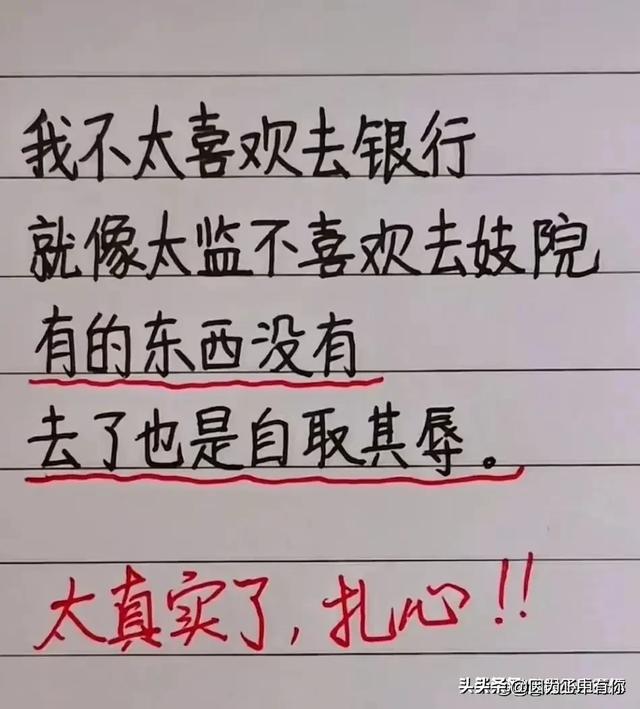 我不太喜欢去银行
就像太监不喜欢去妓院
有的东西没有
去了也是自取其辱。
太真实了,扎心!!